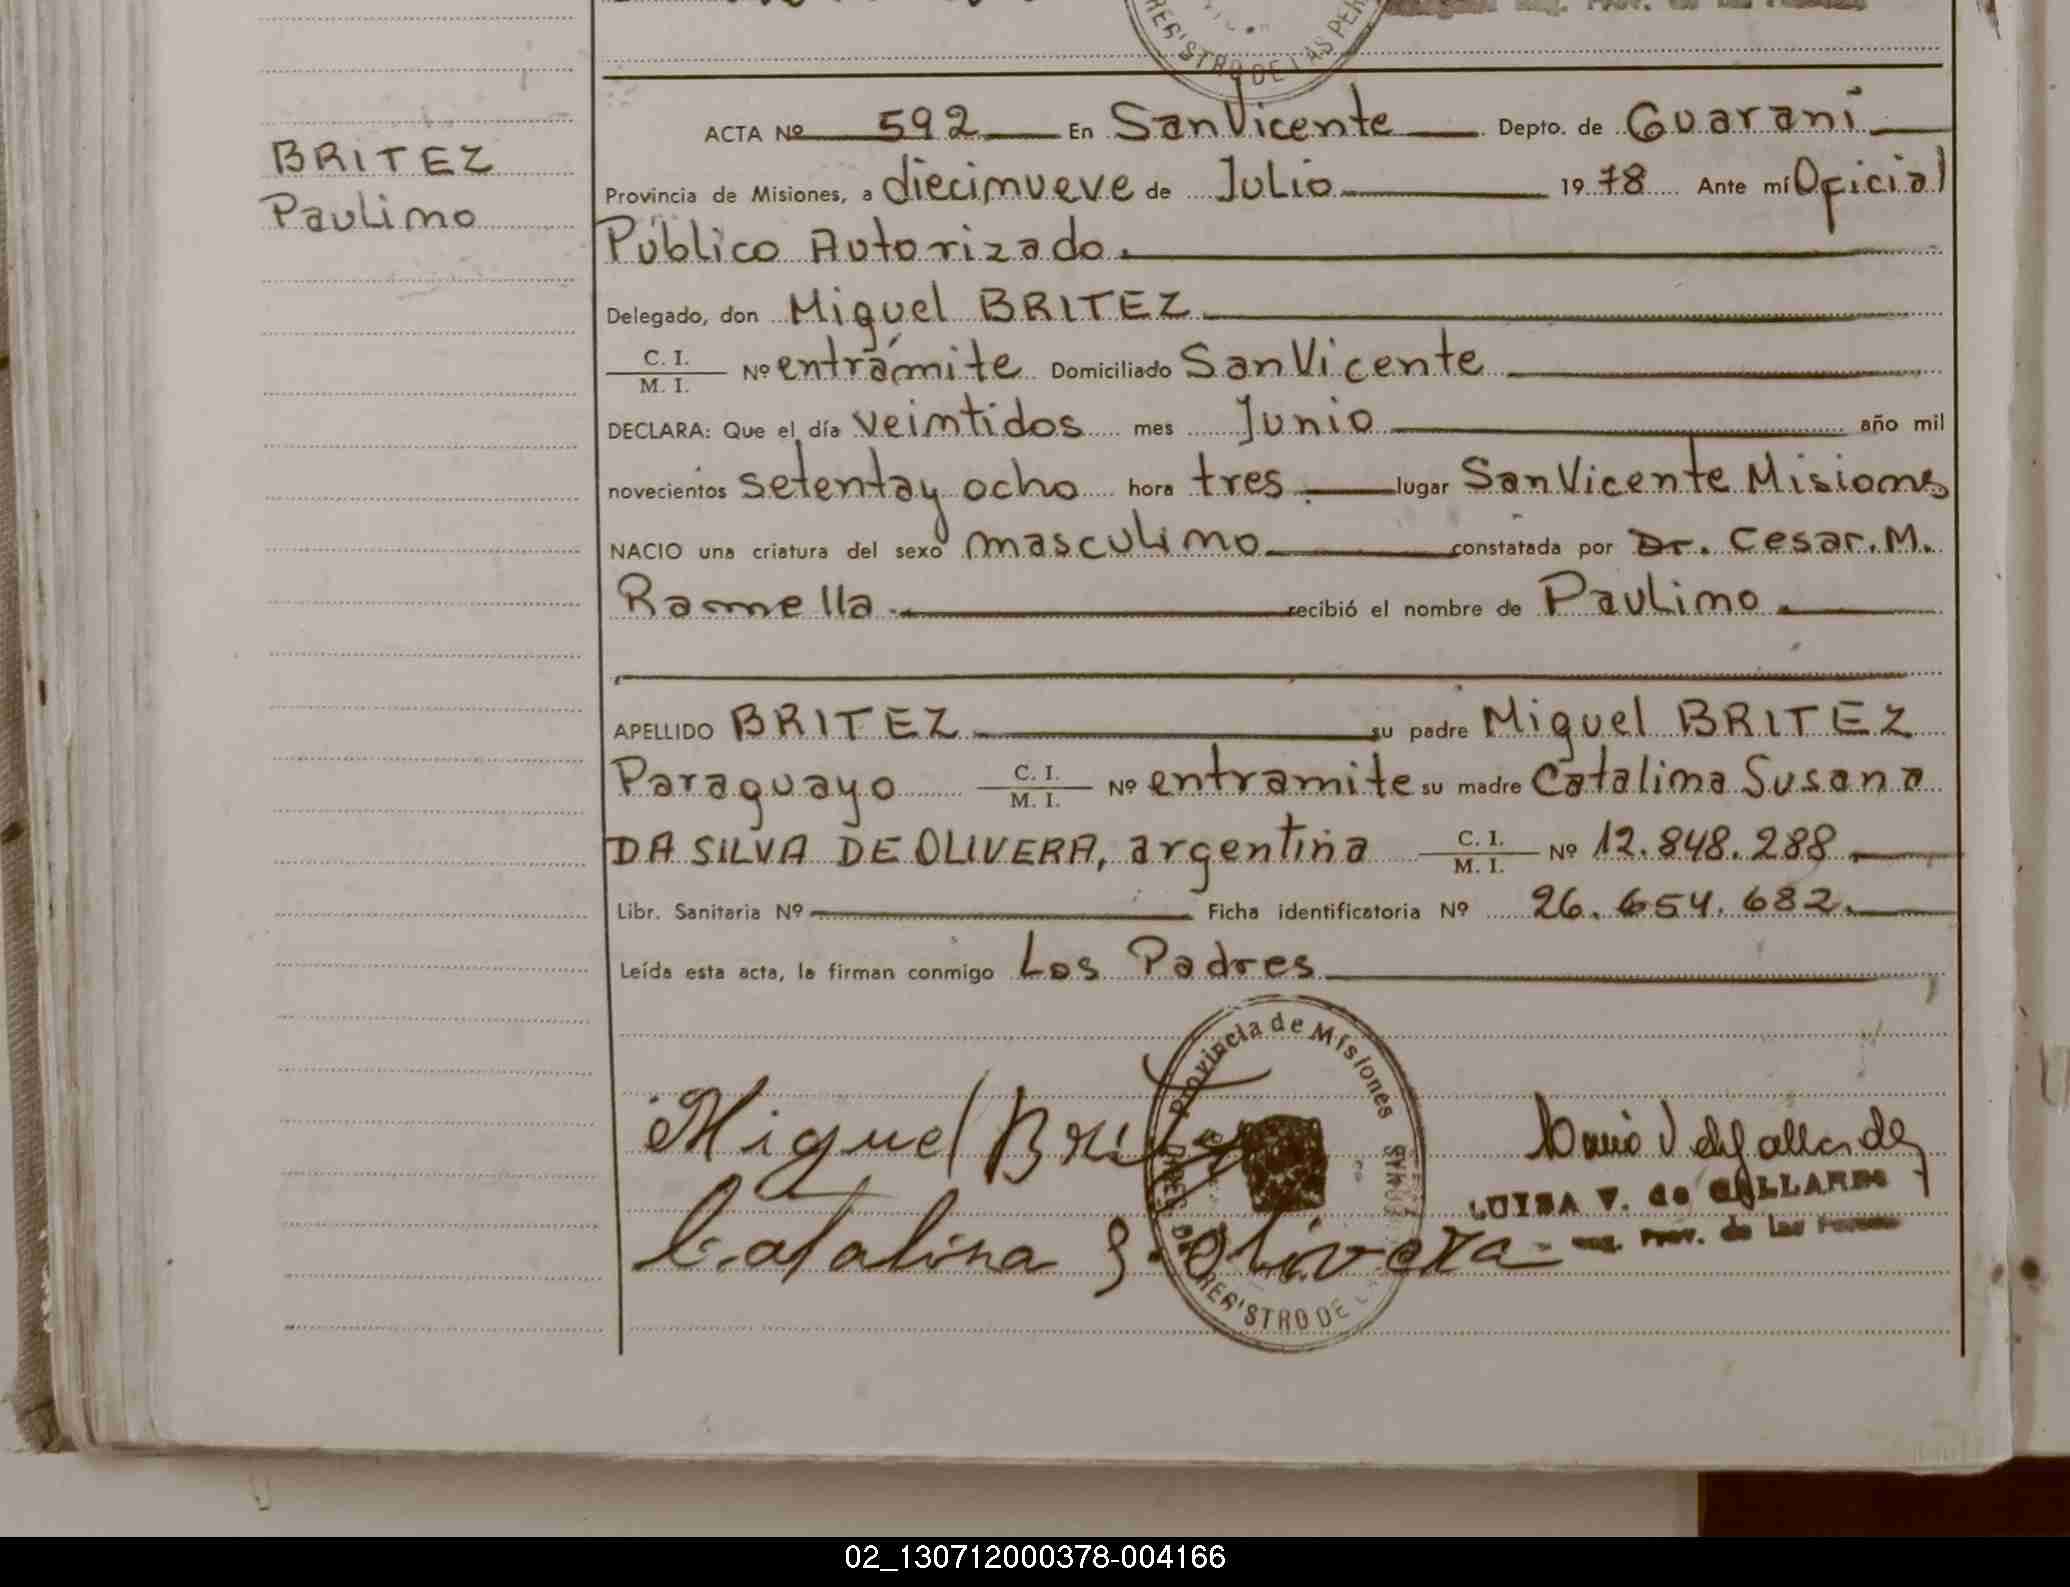 REGISTRO DE LAS PER
BRITEZ
Paulino
ACTA Nº 592 En San Vicente Depto. de Guaraní
Provincia de Misiones, a diecinueve de Julio 1978 Ante mí Oficial
Público Autorizado.
Delegado, don Miguel BRITEZ
C. I.
M. I. Nº en trámite Domiciliado San Vicente
DECLARA: Que el día veintidos mes Junio año mil
novecientos setenta y ocho hora tres lugar San Vicente Misiones
NACIO una criatura del sexo masculino constatada por Dr. Cesar. M.
Ramella recibió el nombre de Paulino
APELLIDO BRITEZ su padre Miguel BRITEZ
Paraguayo C. I.
M. I. Nº en tramite su madre Catalina Susana
DA SILVA DE OLIVERA, argentina C. I.
M. I. Nº 12.848.288
Libr. Sanitaria Nº Ficha identificatoria Nº 26.654.682.
Leída esta acta, la firman conmigo Los Padres
Provincia de Misiones
Miguel Britez
LUISA V. de GALLARDO
Catalina S. Olivera
Prov. de las
REGISTRO DE
02_130712000378-004166